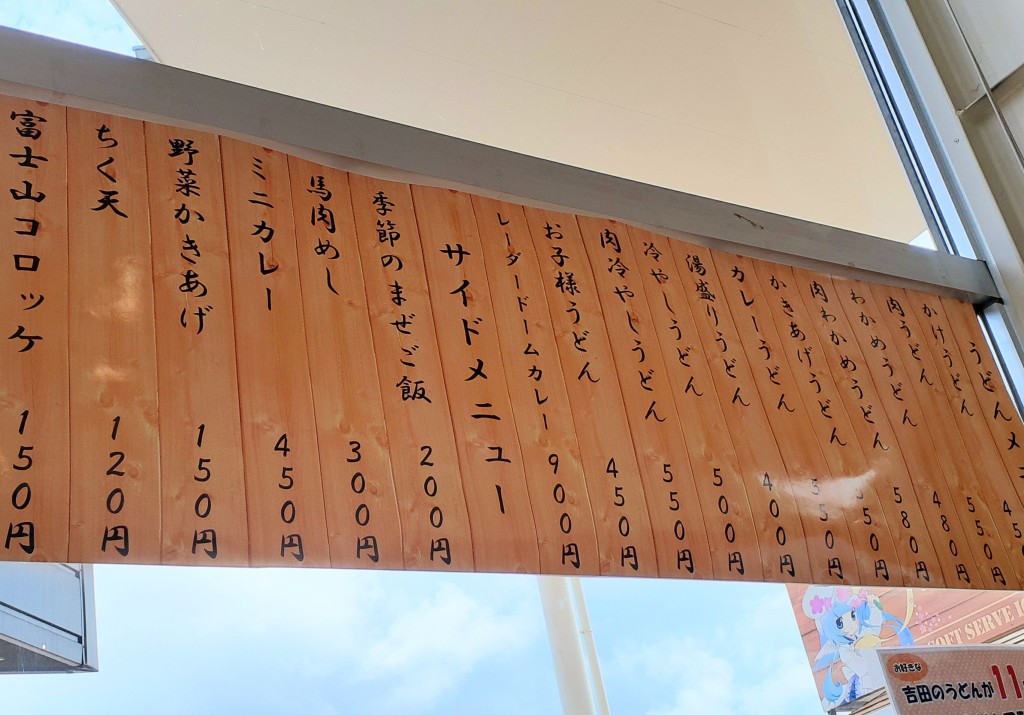 うどんメニ
かけうどん 45
肉うどん 550円
わかめうどん 480円
肉わかめうどん 580円
かきあげうどん 550円
カレーうどん 550円
湯盛りうどん 400円
冷やしうどん 500円
肉冷やしうどん 550円
お子様うどん 450円
レーダードームカレー 900円
サイドメニュー
季節のまぜご飯 200円
馬肉めし 300円
ミニカレー 450円
野菜かきあげ 150円
ちく天 120円
富士山コロッケ 150円
SOFT SERVE I
お好きな
吉田のうどんが11